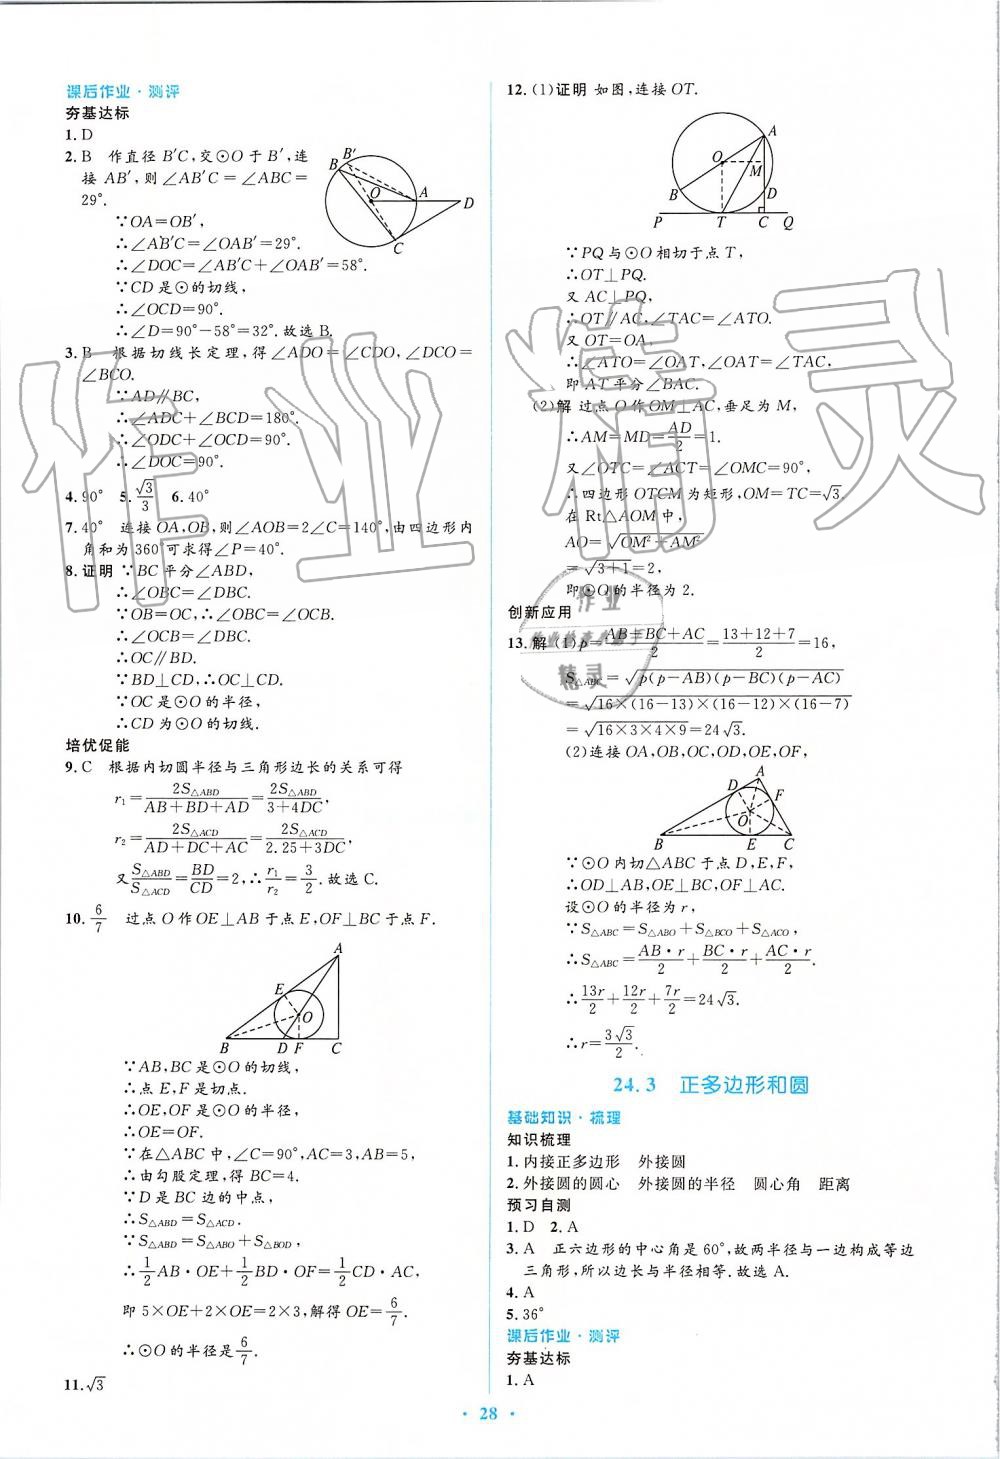 课后作业·测评
夯基达标
1. D
2. B 作直径 B′C,交⊙O 于 B′,连
接 AB′,则∠AB′C=∠ABC=
29°.
∵OA=OB′,
∴∠AB′C=∠OAB′=29°.
∴∠DOC=∠AB′C+∠OAB′=58°.
∵CD 是⊙的切线,
∴∠OCD=90°.
∴∠D=90°-58°=32°.故选 B.
B′
B
O
A
D
C
3. B 根据切线长定理,得∠ADO=∠CDO,∠DCO=
∠BCO.
∵AD∥BC,
∴∠ADC+∠BCD=180°.
∴∠ODC+∠OCD=90°.
∴∠DOC=90°.
4. 90° 5. √3/3 6. 40°
7. 40° 连接 OA,OB,则∠AOB=2∠C=140°,由四边形内
角和为 360°可求得∠P=40°.
8. 证明 ∵BC 平分∠ABD,
∴∠OBC=∠DBC.
∵OB=OC,∴∠OBC=∠OCB.
∴∠OCB=∠DBC.
∴OC∥BD.
∵BD⊥CD,∴OC⊥CD.
∵OC 是⊙O 的半径,
∴CD 为⊙O 的切线.
培优促能
9. C 根据内切圆半径与三角形边长的关系可得
r₁=2S△ABD/(AB+BD+AD)=2S△ABD/(3+4DC),
r₂=2S△ACD/(AD+DC+AC)=2S△ACD/(2.25+3DC),
又 S△ABD/S△ACD=BD/CD=2,∴r₁/r₂=3/2.故选 C.
10. 6/7 过点 O 作 OE⊥AB 于点 E,OF⊥BC 于点 F.
A
E
O
B D F C
∵AB,BC 是⊙O 的切线,
∴点 E,F 是切点.
∴OE,OF 是⊙O 的半径,
∴OE=OF.
∵在△ABC 中,∠C=90°,AC=3,AB=5,
∴由勾股定理,得 BC=4.
∵D 是 BC 边的中点,
∴S△ABD=S△ACD.
∵S△ABD=S△ABO+S△BOD,
∴1/2AB·OE+1/2BD·OF=1/2CD·AC,
即 5×OE+2×OE=2×3,解得 OE=6/7.
∴⊙O 的半径是6/7.
11. √3
12. (1)证明 如图,连接 OT.
A
O
M
B
D
P T C Q
∵PQ 与⊙O 相切于点 T,
∴OT⊥PQ.
又 AC⊥PQ,
∴OT∥AC,∠TAC=∠ATO.
又 OT=OA,
∴∠ATO=∠OAT,∠OAT=∠TAC,
即 AT 平分∠BAC.
(2)解 过点 O 作 OM⊥AC,垂足为 M,
∴AM=MD=AD/2=1.
又∠OTC=∠ACT=∠OMC=90°,
∴四边形 OTCM 为矩形,OM=TC=√3.
在 Rt△AOM 中,
AO=√(OM²+AM²)
=√(3+1)=2,
即⊙O 的半径为 2.
创新应用
13. 解 (1)p=(AB+BC+AC)/2=(13+12+7)/2=16,
S△ABC=√(p(p-AB)(p-BC)(p-AC))
=√(16×(16-13)×(16-12)×(16-7))
=√(16×3×4×9)=24√3.
(2)连接 OA,OB,OC,OD,OE,OF,
A
D
F
O
B E C
∵⊙O 内切△ABC 于点 D,E,F,
∴OD⊥AB,OE⊥BC,OF⊥AC.
设⊙O 的半径为 r,
∵S△ABC=S△ABO+S△BCO+S△ACO,
∴S△ABC=AB·r/2+BC·r/2+AC·r/2.
∴13r/2+12r/2+7r/2=24√3.
∴r=3√3/2.
24.3 正多边形和圆
基础知识·梳理
知识梳理
1. 内接正多边形 外接圆
2. 外接圆的圆心 外接圆的半径 圆心角 距离
预习自测
1. D 2. A
3. A 正六边形的中心角是 60°,故两半径与一边构成等边
三角形,所以边长与半径相等.故选 A.
4. A
5. 36°
课后作业·测评
夯基达标
1. A
· 28 ·
作业精灵
作业
精灵